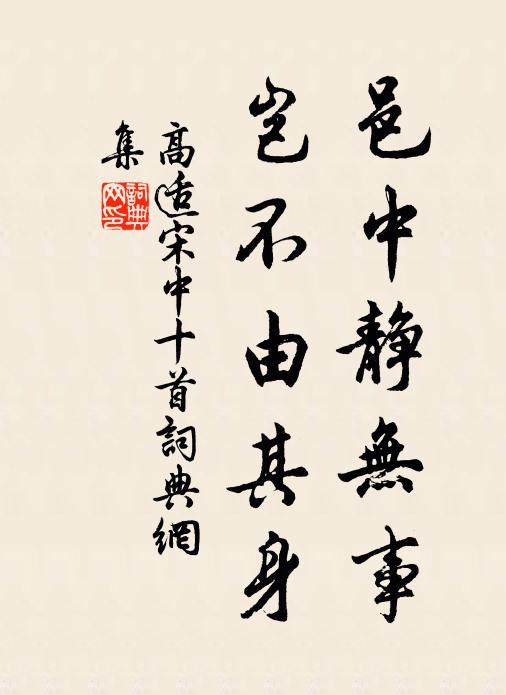 邑中靜無事
豈不由其身
高適宋中十首詞典網
集
詞典
网印